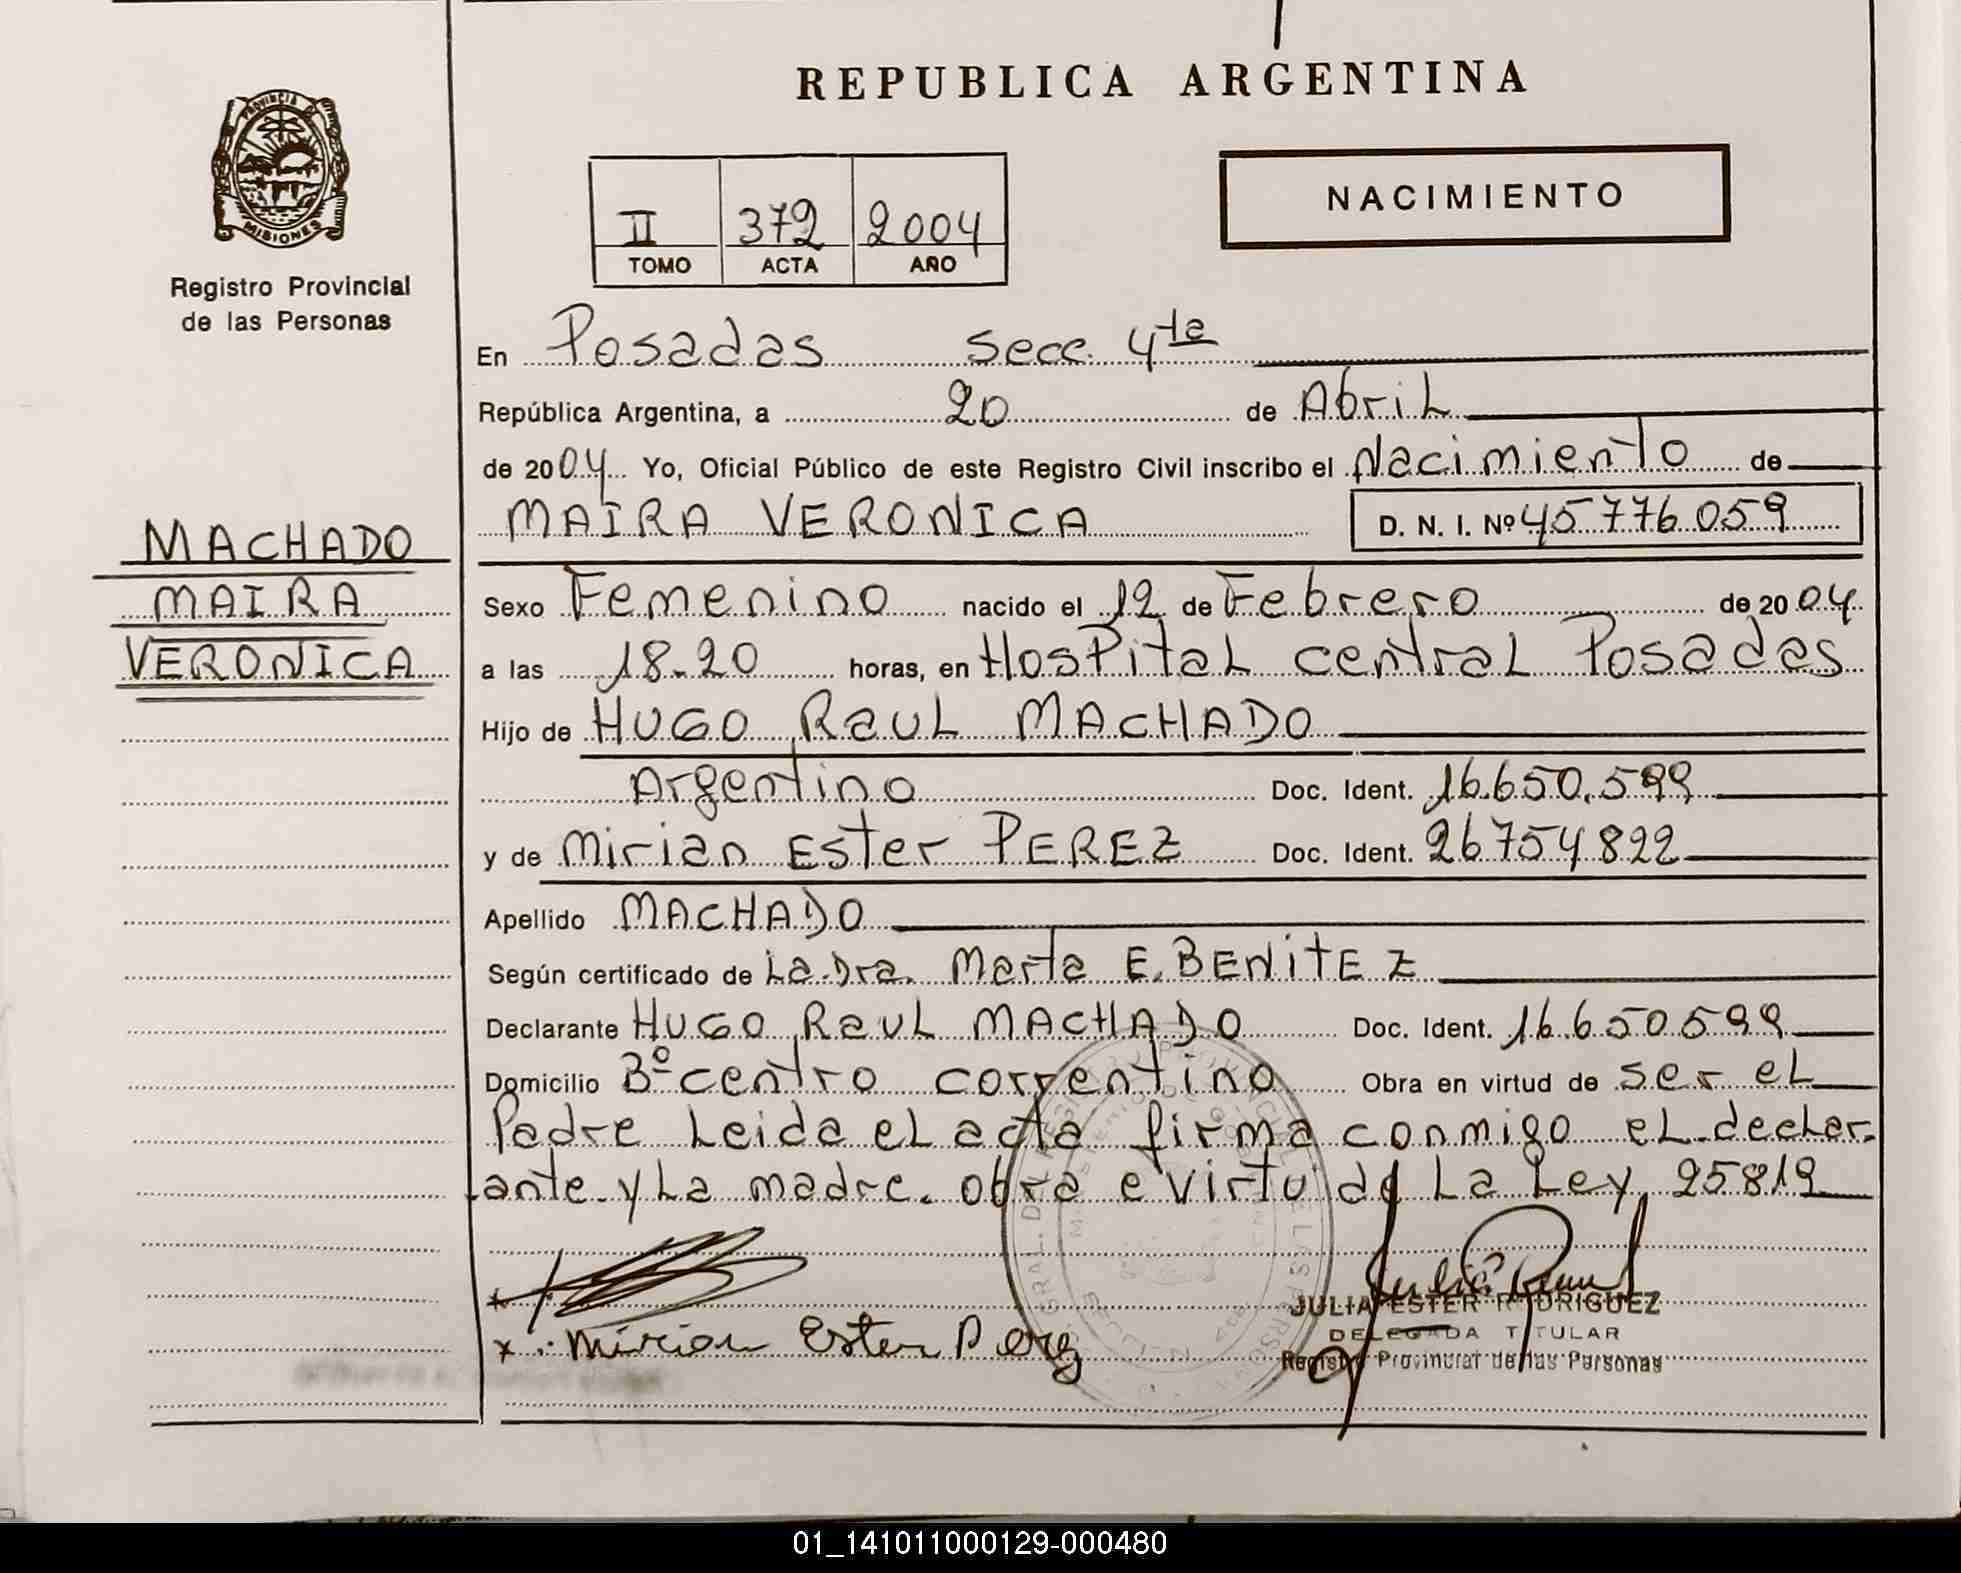 REPUBLICA ARGENTINA
PROVINCIA DE MISIONES
Registro Provincial
de las Personas
NACIMIENTO
II 372 2004
TOMO ACTA AÑO
En Posadas secc. 4ta
República Argentina, a 20 de AbriL
de 2004 Yo, Oficial Público de este Registro Civil inscribo el Nacimiento de
MAIRA VERONICA D. N. I. Nº 45776059
MACHADO
MAIRA
VERONICA
Sexo Femenino nacido el 12 de Febrero de 2004
a las 18-20 horas, en HosPitaL centraL Posadas
Hijo de HUGO RauL MACHADO
Argentino Doc. Ident. 16.650.599
y de Mirian Ester PEREZ Doc. Ident. 26754822
Apellido MACHADO
Según certificado de La Dra. Marta E. BENITEZ
Declarante HUGO RauL MACHADO Doc. Ident. 16650599
Domicilio Bº centro correntino Obra en virtud de ser eL
Padre Leida eL acta firma conmigo eL declar-
ante y La madre. obra e virtud de La Ley 25819
Mirian Ester Perez
JULIA ESTER RODRIGUEZ
DELEGADA TITULAR
Registro Provincial de las Personas
01_141011000129-000480